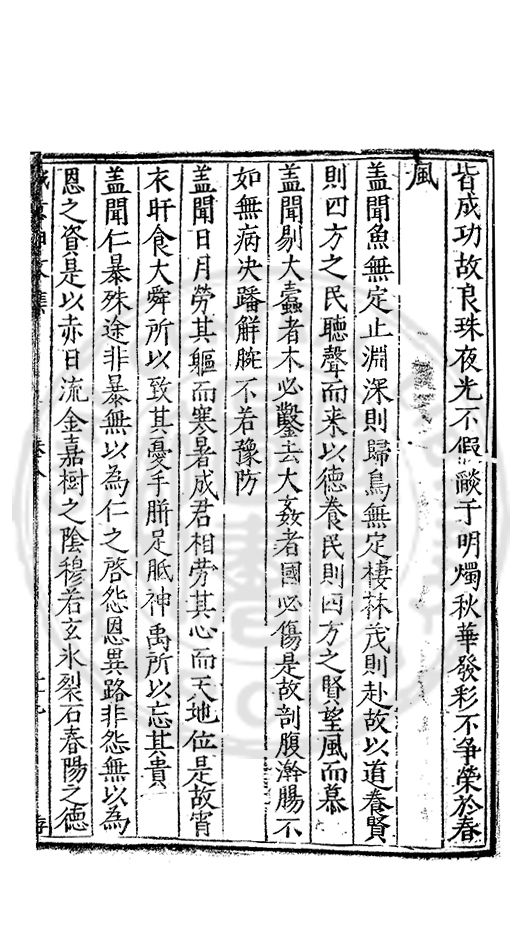 皆成功故良珠夜光不假燄于明燭秋華發彩不争榮於春
風
蓋聞魚無定止淵深則歸鳥無定棲林茂則赴故以道養賢
則四方之民聽聲而来以德養民則四方之賢望風而慕
蓋聞剔大蠹者木必鑿去大姦者國必傷是故剖腹澣腸不
如無病决蹯解腕不若豫防
蓋聞日月勞其軀而寒暑成君相勞其心而天地位是故宵
衣旰食大舜所以致其憂手胼足胝神禹所以忘其貴
蓋聞仁暴殊途非暴無以為仁之啓怨恩異路非怨無以為
恩之資是以赤日流金嘉樹之陰穆若玄氷裂石春陽之德